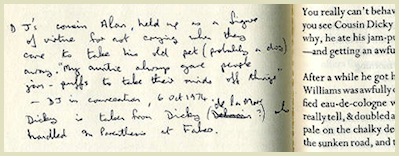 DJ's cousin Alan, held up as a figure
of virtue for not crying when they
came to take his old pet (probably a dog)
away. "My auntie always gave people
jam-puffs to take their minds off things"
— DJ in conversation, 6 Oct 1974.
Dickie is taken from Dicky de la Mare
handled In Parenthesis at Faber.
You really can't behav
you see Cousin Dicky
why, he ate his jam-pu
—and getting an awfu
After a while he got h
Williams was awfully c
fied eau-de-cologne w
really tell, & doubled a
pale on the chalky de
the sunken road, and t